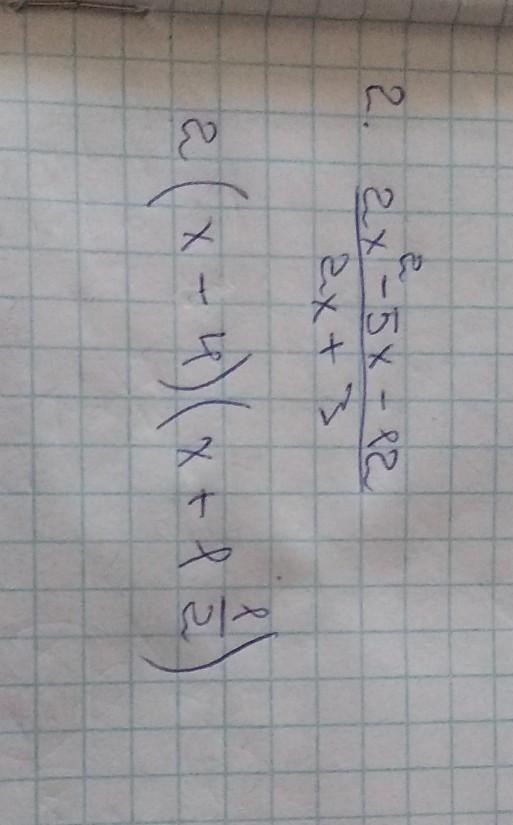 2. 2x² - 5x - 12
2x + 3
2(x - 4)(x + 1 1/2)